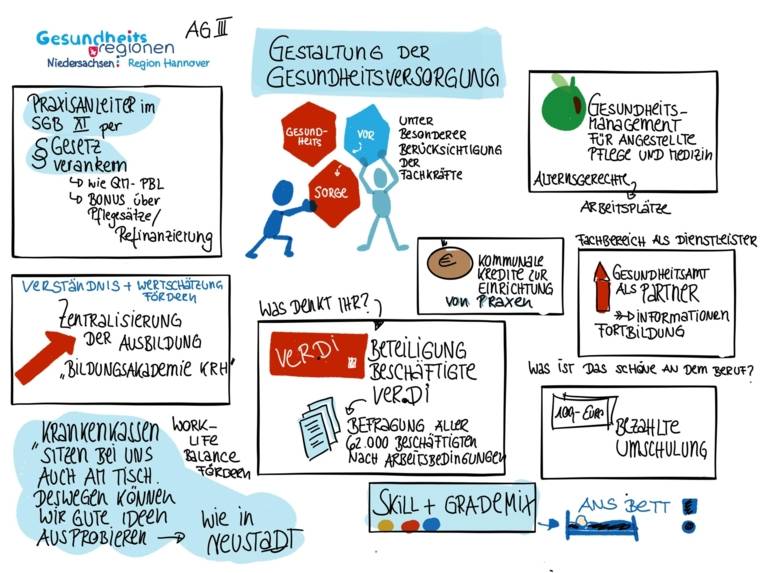 Gesundheits
regionen
Niedersachsen: Region Hannover
AG III
GESTALTUNG DER
GESUNDHEITSVERSORGUNG
GESUND-
HEITS
VOR
SORGE
UNTER
BESONDERER
BERÜCKSICHTIGUNG
DER
FACHKRÄFTE
PRAXISANLEITER im
SGB XI per
§ GESETZ
verankern
↳ wie QM-PBL
↳ BONUS über
Pflegesätze/
Refinanzierung
GESUNDHEITS-
MANAGEMENT
FÜR ANGESTELLTE
PFLEGE UND MEDIZIN
ALTERNSGERECHTE
ARBEITSPLÄTZE
€
KOMMUNALE
KREDITE ZUR
EINRICHTUNG
VON PRAXEN
FACHBEREICH ALS DIENSTLEISTER
GESUNDHEITSAMT
ALS PARTNER
INFORMATIONEN
FORTBILDUNG
VERSTÄNDNIS + WERTSCHÄTZUNG
FÖRDERN
ZENTRALISIERUNG
DER AUSBILDUNG
„BILDUNGSAKADEMIE KRH"
WAS DENKT IHR?
VERDI
BETEILIGUNG
BESCHÄFTIGTE
VER.DI
BEFRAGUNG ALLER
62.000 BESCHÄFTIGTEN
NACH ARBEITSBEDINGUNGEN
WAS IST DAS SCHÖNE AN DEM BERUF?
100,-EURO
BEZAHLTE
UMSCHULUNG
„KRANKENKASSEN
SITZEN BEI UNS
AUCH AM TISCH.
DESWEGEN KÖNNEN
WIR GUTE IDEEN
AUSPROBIEREN →
WIE IN
NEUSTADT
WORK-
LIFE
BALANCE
FÖRDERN
SKILL + GRADEMIX
ANS BETT!